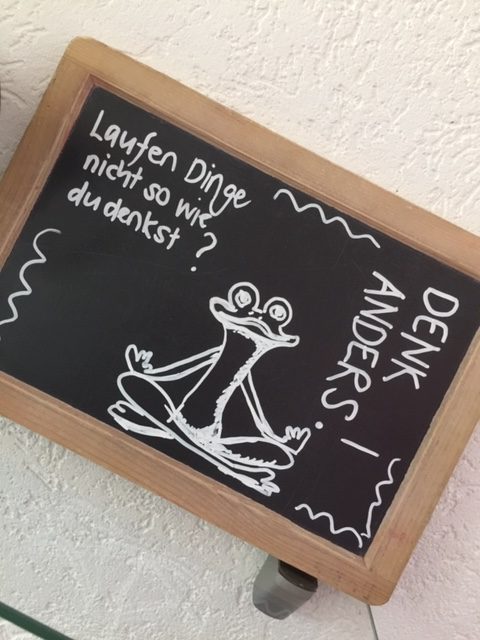 Laufen Dinge
nicht so wie
du denkst ?
DENK
ANDERS. !